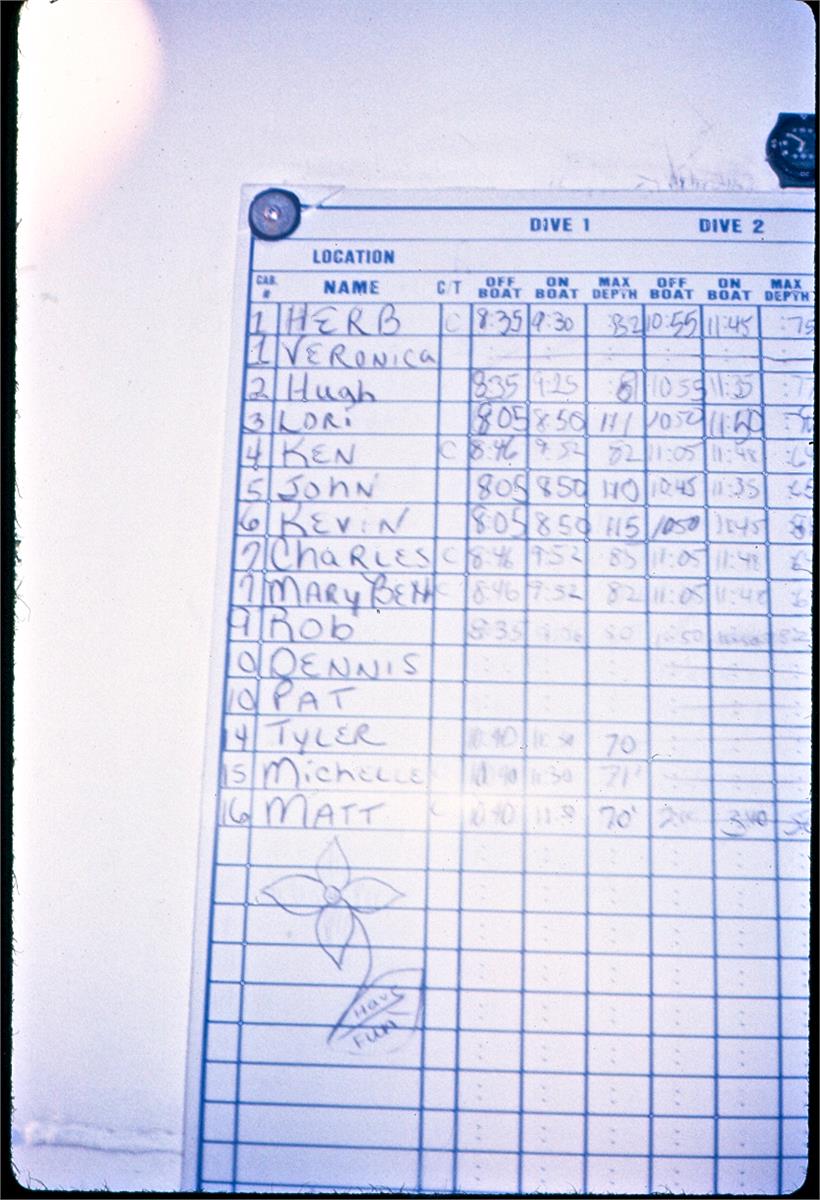 DIVE 1 DIVE 2
LOCATION
CAB. # NAME C/T OFF BOAT ON BOAT MAX DEPTH OFF BOAT ON BOAT MAX DEPTH
1 HERB C 8:35 9:30 :82 10:55 11:45
1 VERONICA
2 Hugh 835 9:25 1055 11:35
3 LORi 805 8:50 111 1050 11:50
4 KEN C 8:46 9:52 82 11:05 11:48
5 JOHN 805 850 110 10:45 11:35
6 KEViN 805 850 115 1050 1145
7 CHARLES C 8:46 9:52 85 11:05 11:48
7 MARY BETH C 8:46 9:52 82 11:05 11:48
9 ROb 8:35 10:50
10 DENNIS
10 PAT
14 TYLER 10:40 11:30 70
15 MiCHELLE 10:40 11:30 71'
16 MATT C 10:40 11:30 70' 3:40
HAVE
FUN